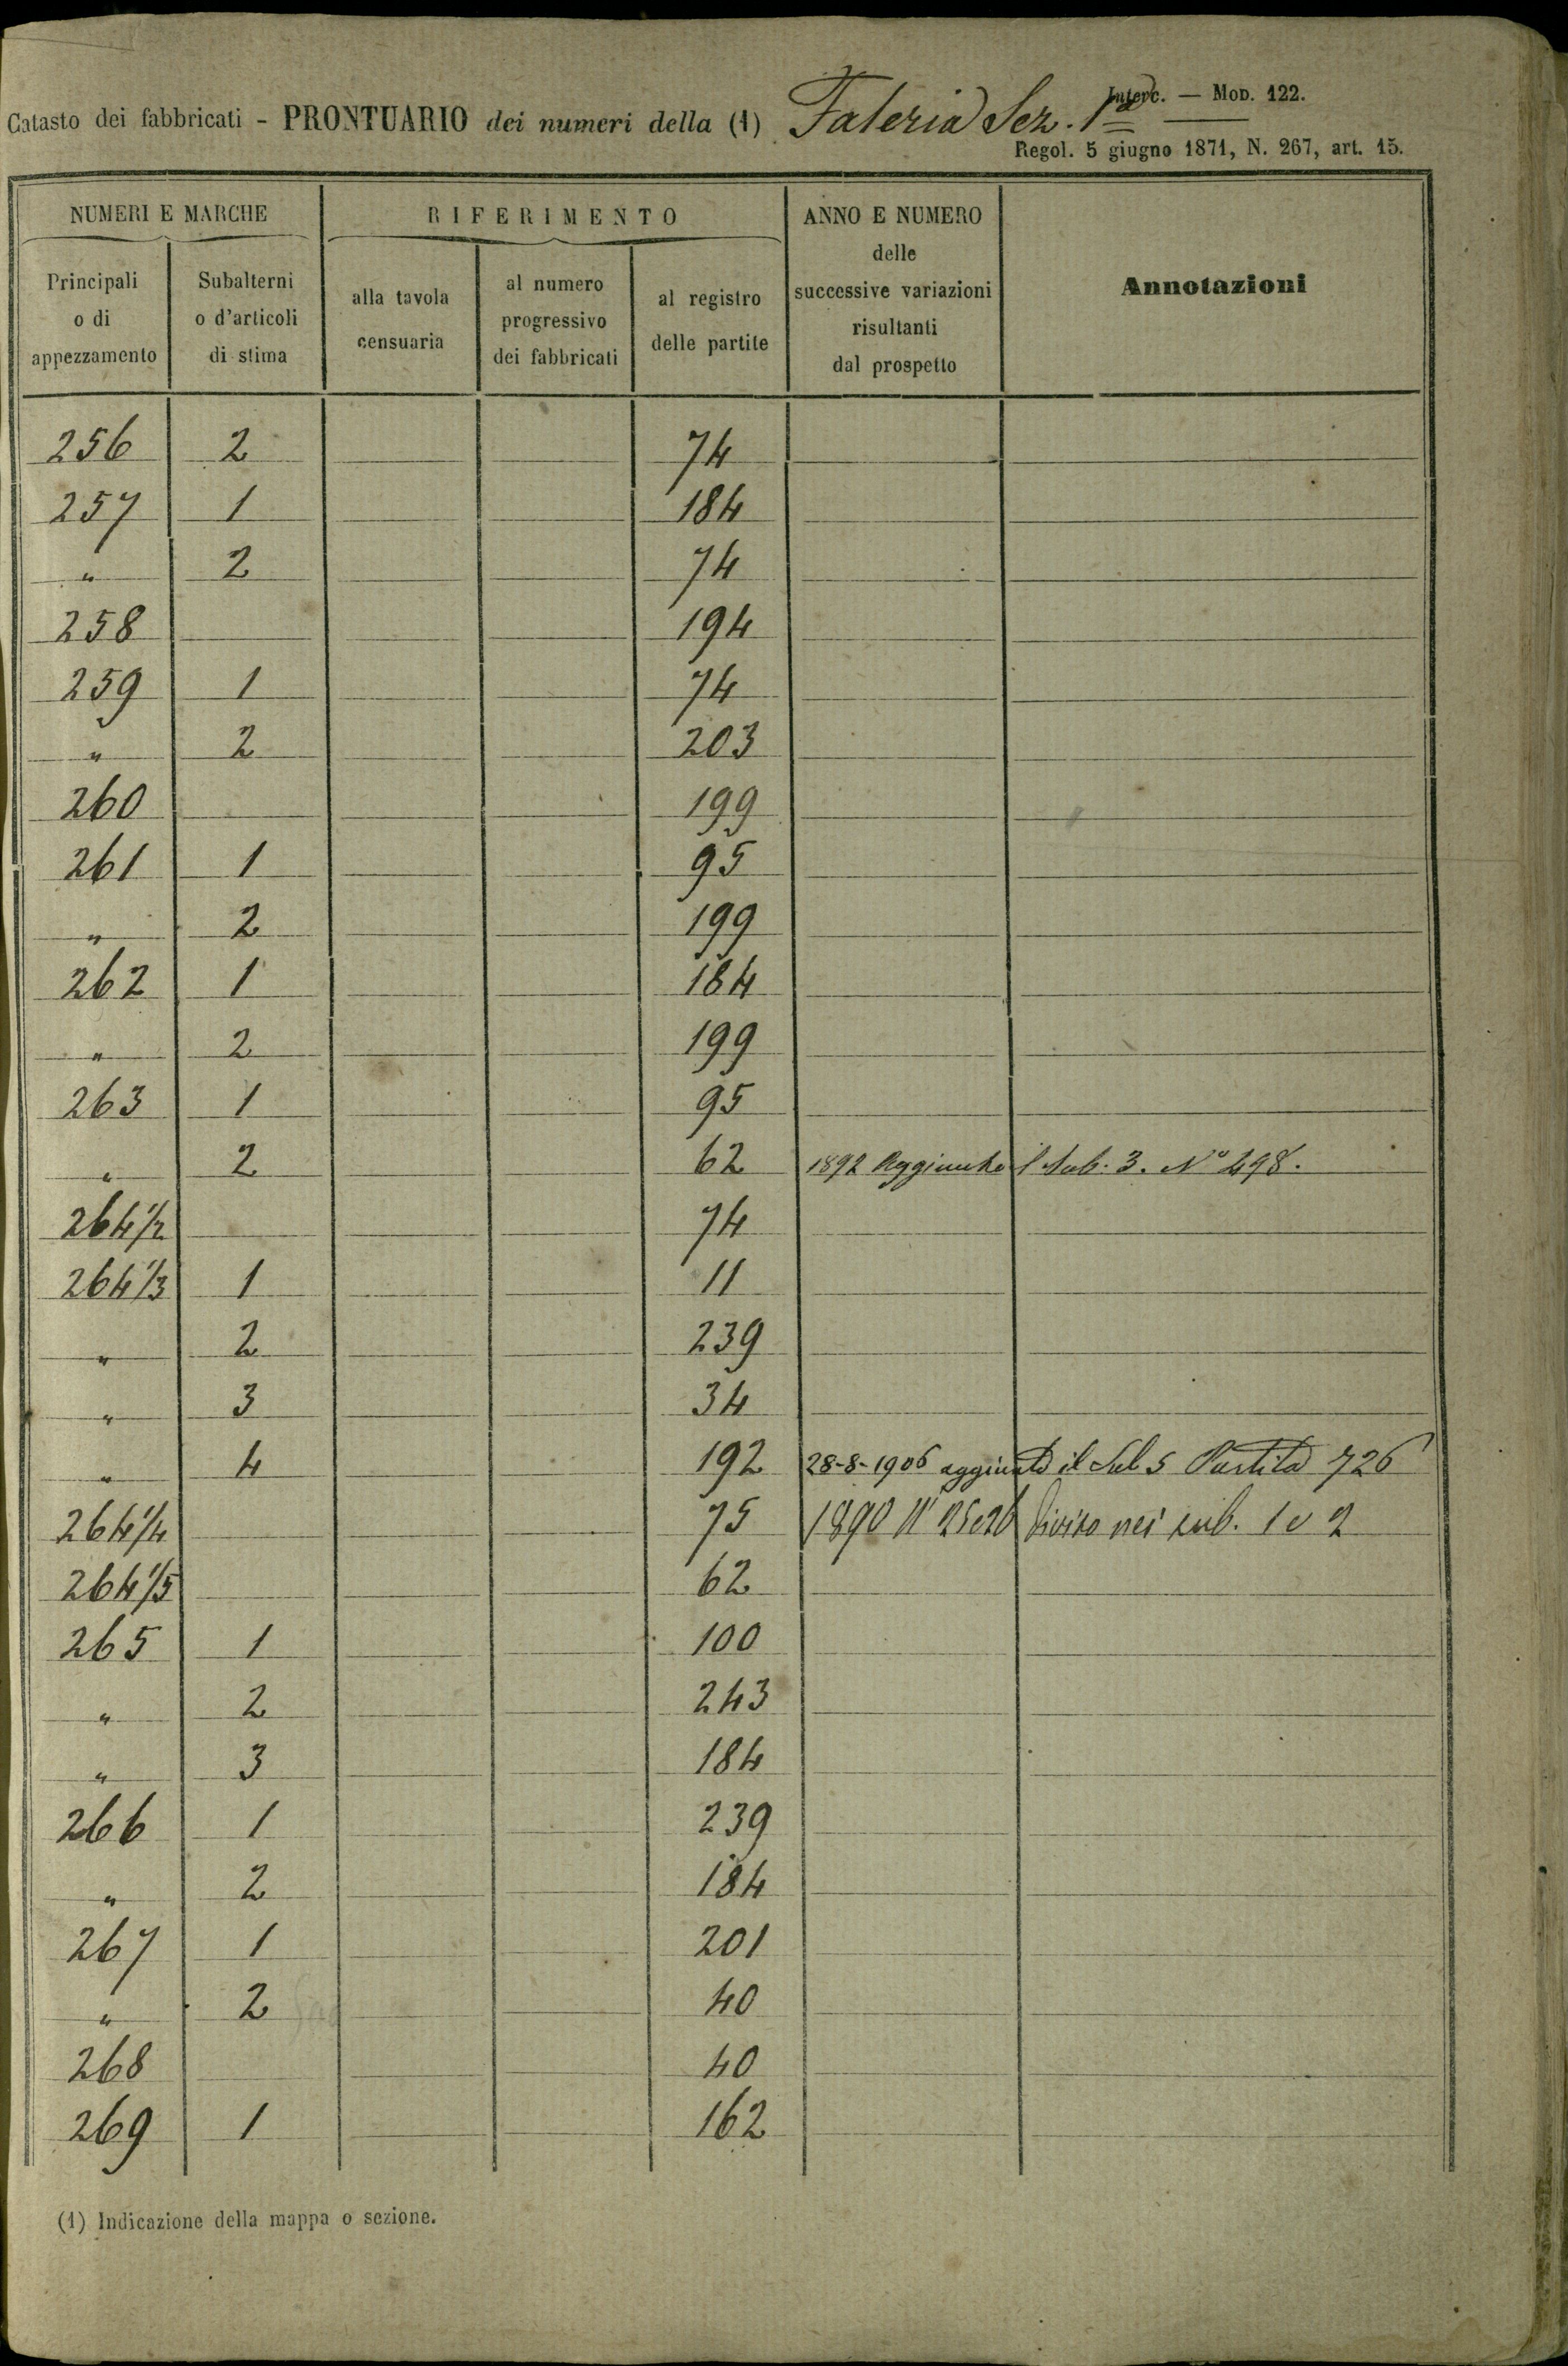 Interc. — Mod. 122.
Catasto dei fabbricati - PRONTUARIO dei numeri della (1) Faleria Sez. 1ª
Regol. 5 giugno 1871, N. 267, art. 15.
NUMERI E MARCHE RIFERIMENTO ANNO E NUMERO delle successive variazioni risultanti dal prospetto Annotazioni
Principali o di appezzamento Subalterni o d'articoli di stima alla tavola censuaria al numero progressivo dei fabbricati al registro delle partite
256 2 74
257 1 184
" 2 74
258 194
259 1 74
" 2 203
260 199
261 1 95
" 2 199
262 1 184
" 2 199
263 1 95
" 2 62 1892 Aggiunto il Sub. 3. Nº 498.
264 1/2 74
264 1/3 1 11
" 2 239
" 3 34
" 4 192 28-8-1906 aggiunto il Sub 5 Partita 726
264 1/4 75 1890 Nⁱ 25e26 diviso nei sub. 1 e 2
264 1/5 62
265 1 100
" 2 243
" 3 184
266 1 239
" 2 184
267 1 201
" 2 40
268 40
269 1 162
(1) Indicazione della mappa o sezione.